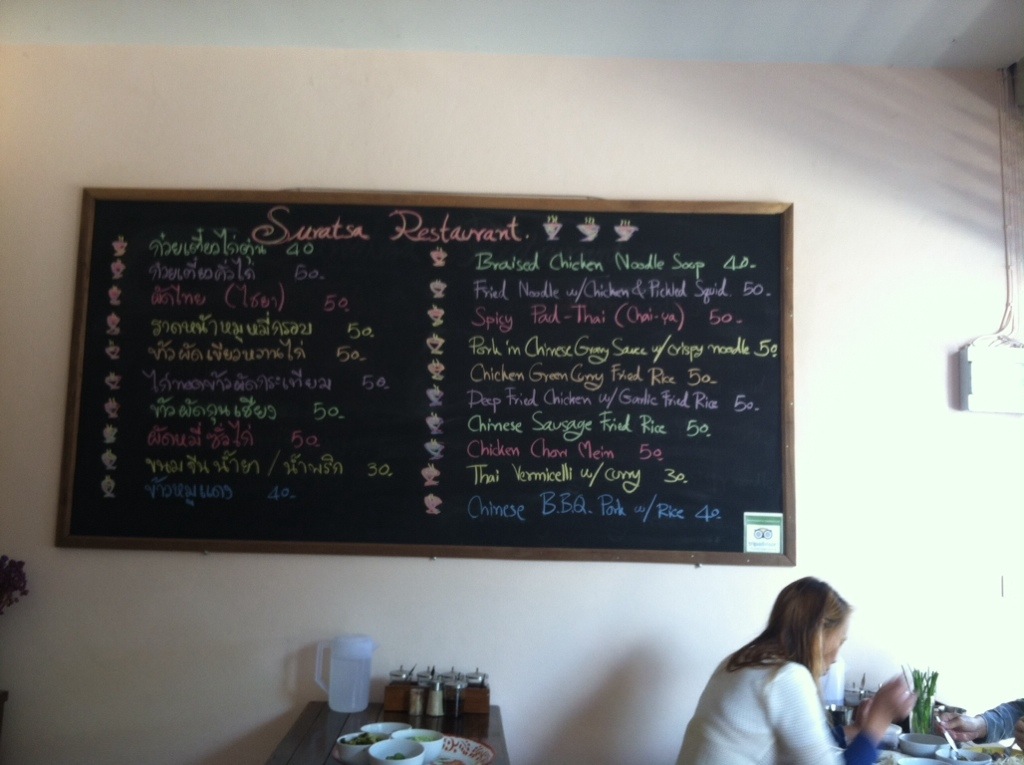 Suratsa Restaurant.
ก๋วยเตี๋ยวไก่ตุ๋น 40
ก๋วยเตี๋ยวคั่วไก่ 50.-
ผัดไทย (ไชยา) 50.
ราดหน้าหมูหมี่กรอบ 50.
ข้าวผัดเขียวหวานไก่ 50.-
ไก่ทอดข้าวผัดกระเทียม 50.-
ข้าวผัดกุนเชียง 50.-
ผัดหมี่ซั่วไก่ 50.-
ขนมจีนน้ำยา / น้ำพริก 30.
ข้าวหมูแดง 40.-
Braised Chicken Noodle Soup 40.-
Fried Noodle w/Chicken & Pickled Squid. 50.-
Spicy Pad-Thai (Chai-ya) 50.-
Pork 'in Chinese Gravy Sauce w/crispy noodle 50
Chicken Green Curry Fried Rice 50.-
Deep Fried Chicken w/ Garlic Fried Rice 50.-
Chinese Sausage Fried Rice 50.
Chicken Chow Mein 50.
Thai Vermicelli w/ curry 30.
Chinese B.B.Q. Pork w/ Rice 40.-